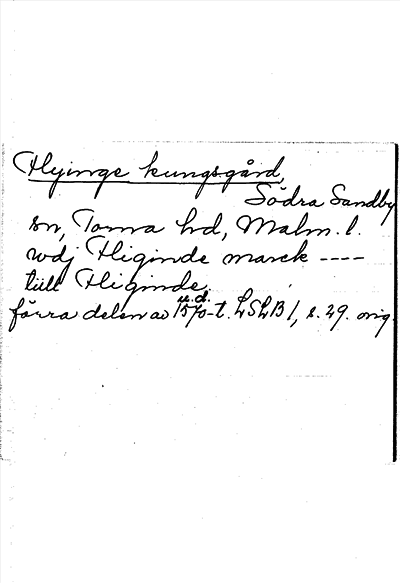 Flyinge kungsgård,
Södra Sandby
sn, Torna hd, Malm. l.
wdj Fliginde marck ----
tiill Fliginde
u.d.
förra delen av 1570-t. LSLB 1, s. 29. orig.